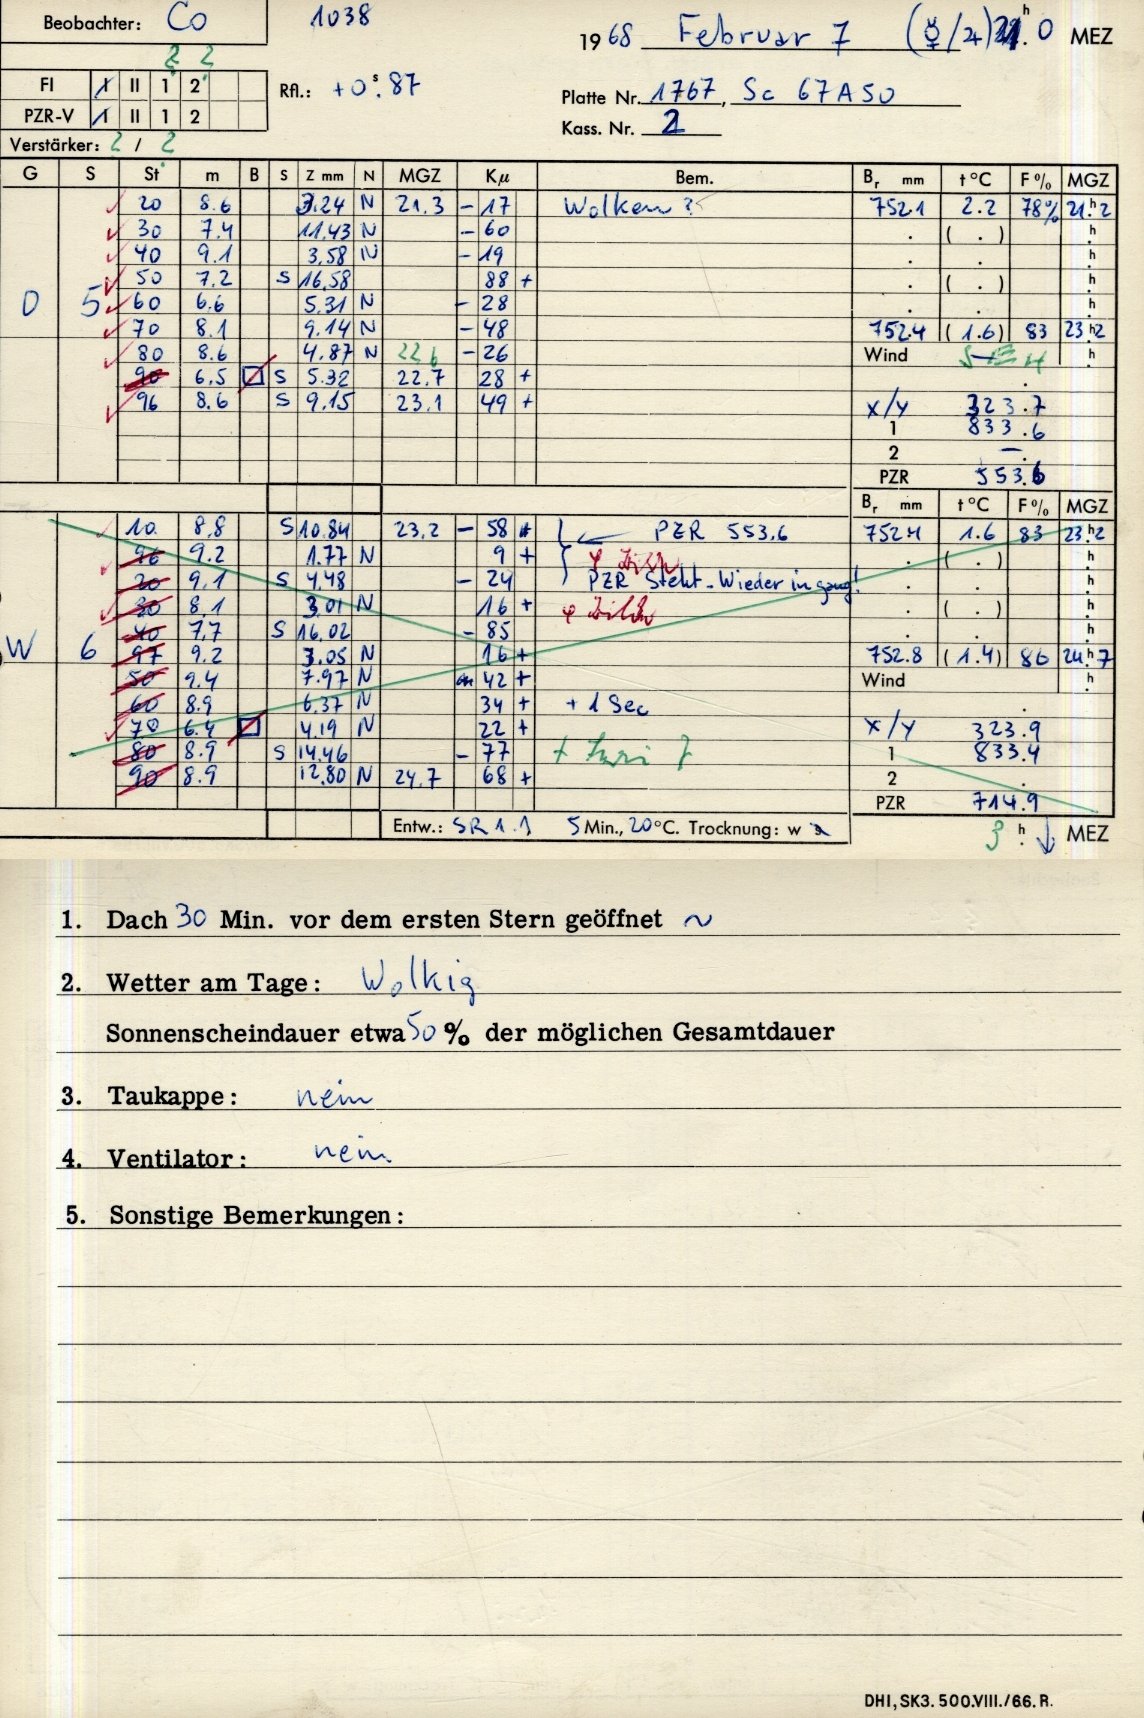 Beobachter: Co 1038
1968 Februar 7 (☿/♃) 21.h 0 MEZ
2 2
FI I II 1 2
Rfl.: +0.s 87
Platte Nr. 1767, Sc 67A50
PZR-V I II 1 2
Kass. Nr. 2
Verstärker: 2 / 2
G S St m B S Z mm N MGZ Kμ Bem. Br mm t °C F % MGZ
20 8.6 3.24 N 21.3 - 17 Wolken? 752.1 2.2 78% 21.h2
30 7.4 11.43 N - 60 . ( . ) h
40 9.1 3.58 N - 19 . . h
50 7.2 S 16.58 88 + . ( . ) h
O 5 60 6.6 5.31 N - 28 . . h
70 8.1 9.14 N - 48 752.4 (1.6) 83 23.h2
80 8.6 4.87 N 22.6 - 26 Wind h
90 6.5 S 5.32 22.7 28 +
96 8.6 S 9.15 23.1 49 + X/Y 323.7
1 833.6
2 –
PZR 553.6
Br mm t °C F % MGZ
10 8.8 S 10.84 23.2 - 58 PZR 553,6 752.4 1.6 83 23.h2
96 9.2 1.77 N 9 + . ( . ) h
20 9.1 S 4.48 - 24 PZR Steht - Wieder in gang! . . h
30 8.1 3.01 N 16 + . ( . ) h
40 7.7 S 16.02 - 85 . . h
W 6 97 9.2 3.05 N 16 + 752.8 (1.4) 86 24.h7
50 9.4 7.97 N 42 + Wind h
60 8.9 6.37 N 34 + + 1 Sec
70 6.4 4.19 N 22 + X/Y 323.9
80 8.9 S 14.46 - 77 1 833.4
90 8.9 12.80 N 24.7 68 + 2 .
PZR 714.9
Entw.: SR 1.1 5 Min., 20°C. Trocknung: w
3 h. ↓ MEZ
1. Dach 30 Min. vor dem ersten Stern geöffnet ~
2. Wetter am Tage: Wolkig
Sonnenscheindauer etwa 50 % der möglichen Gesamtdauer
3. Taukappe: nein
4. Ventilator: nein
5. Sonstige Bemerkungen:
DHI, SK3. 500.VIII./66. R.